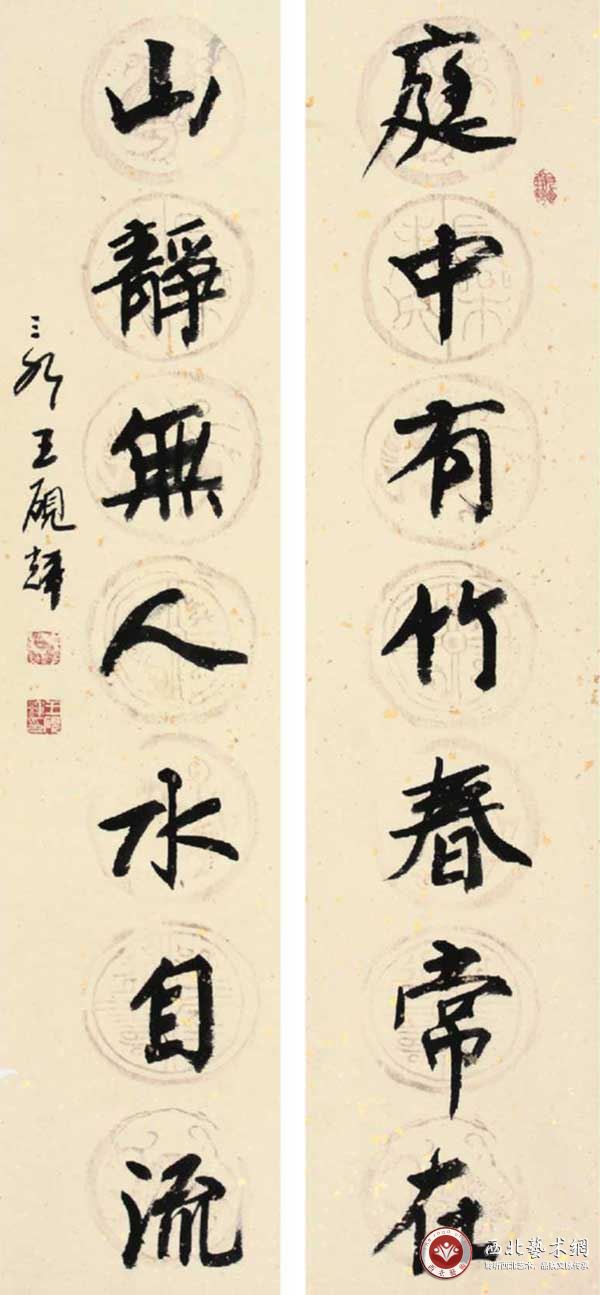 庭中有竹春常在
山靜無人水自流
王硯輝
西北藝术網